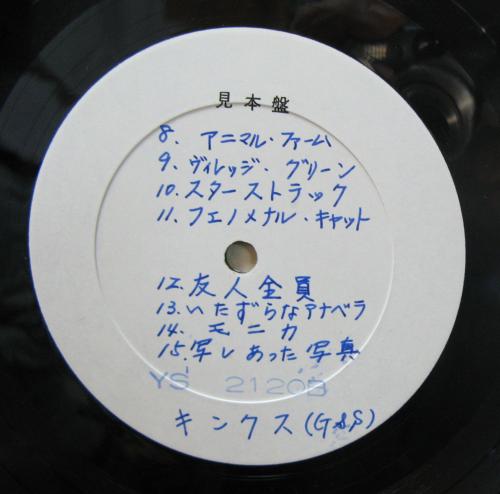 見本盤
8. アニマル・ファーム
9. ヴィレッジ・グリーン
10. スターストラック
11. フェノメナル・キャット
12. 友人全員
13. いたずらなアナベラ
14. モニカ
15. 写しあった写真
YS 2120B
キンクス(G&S)